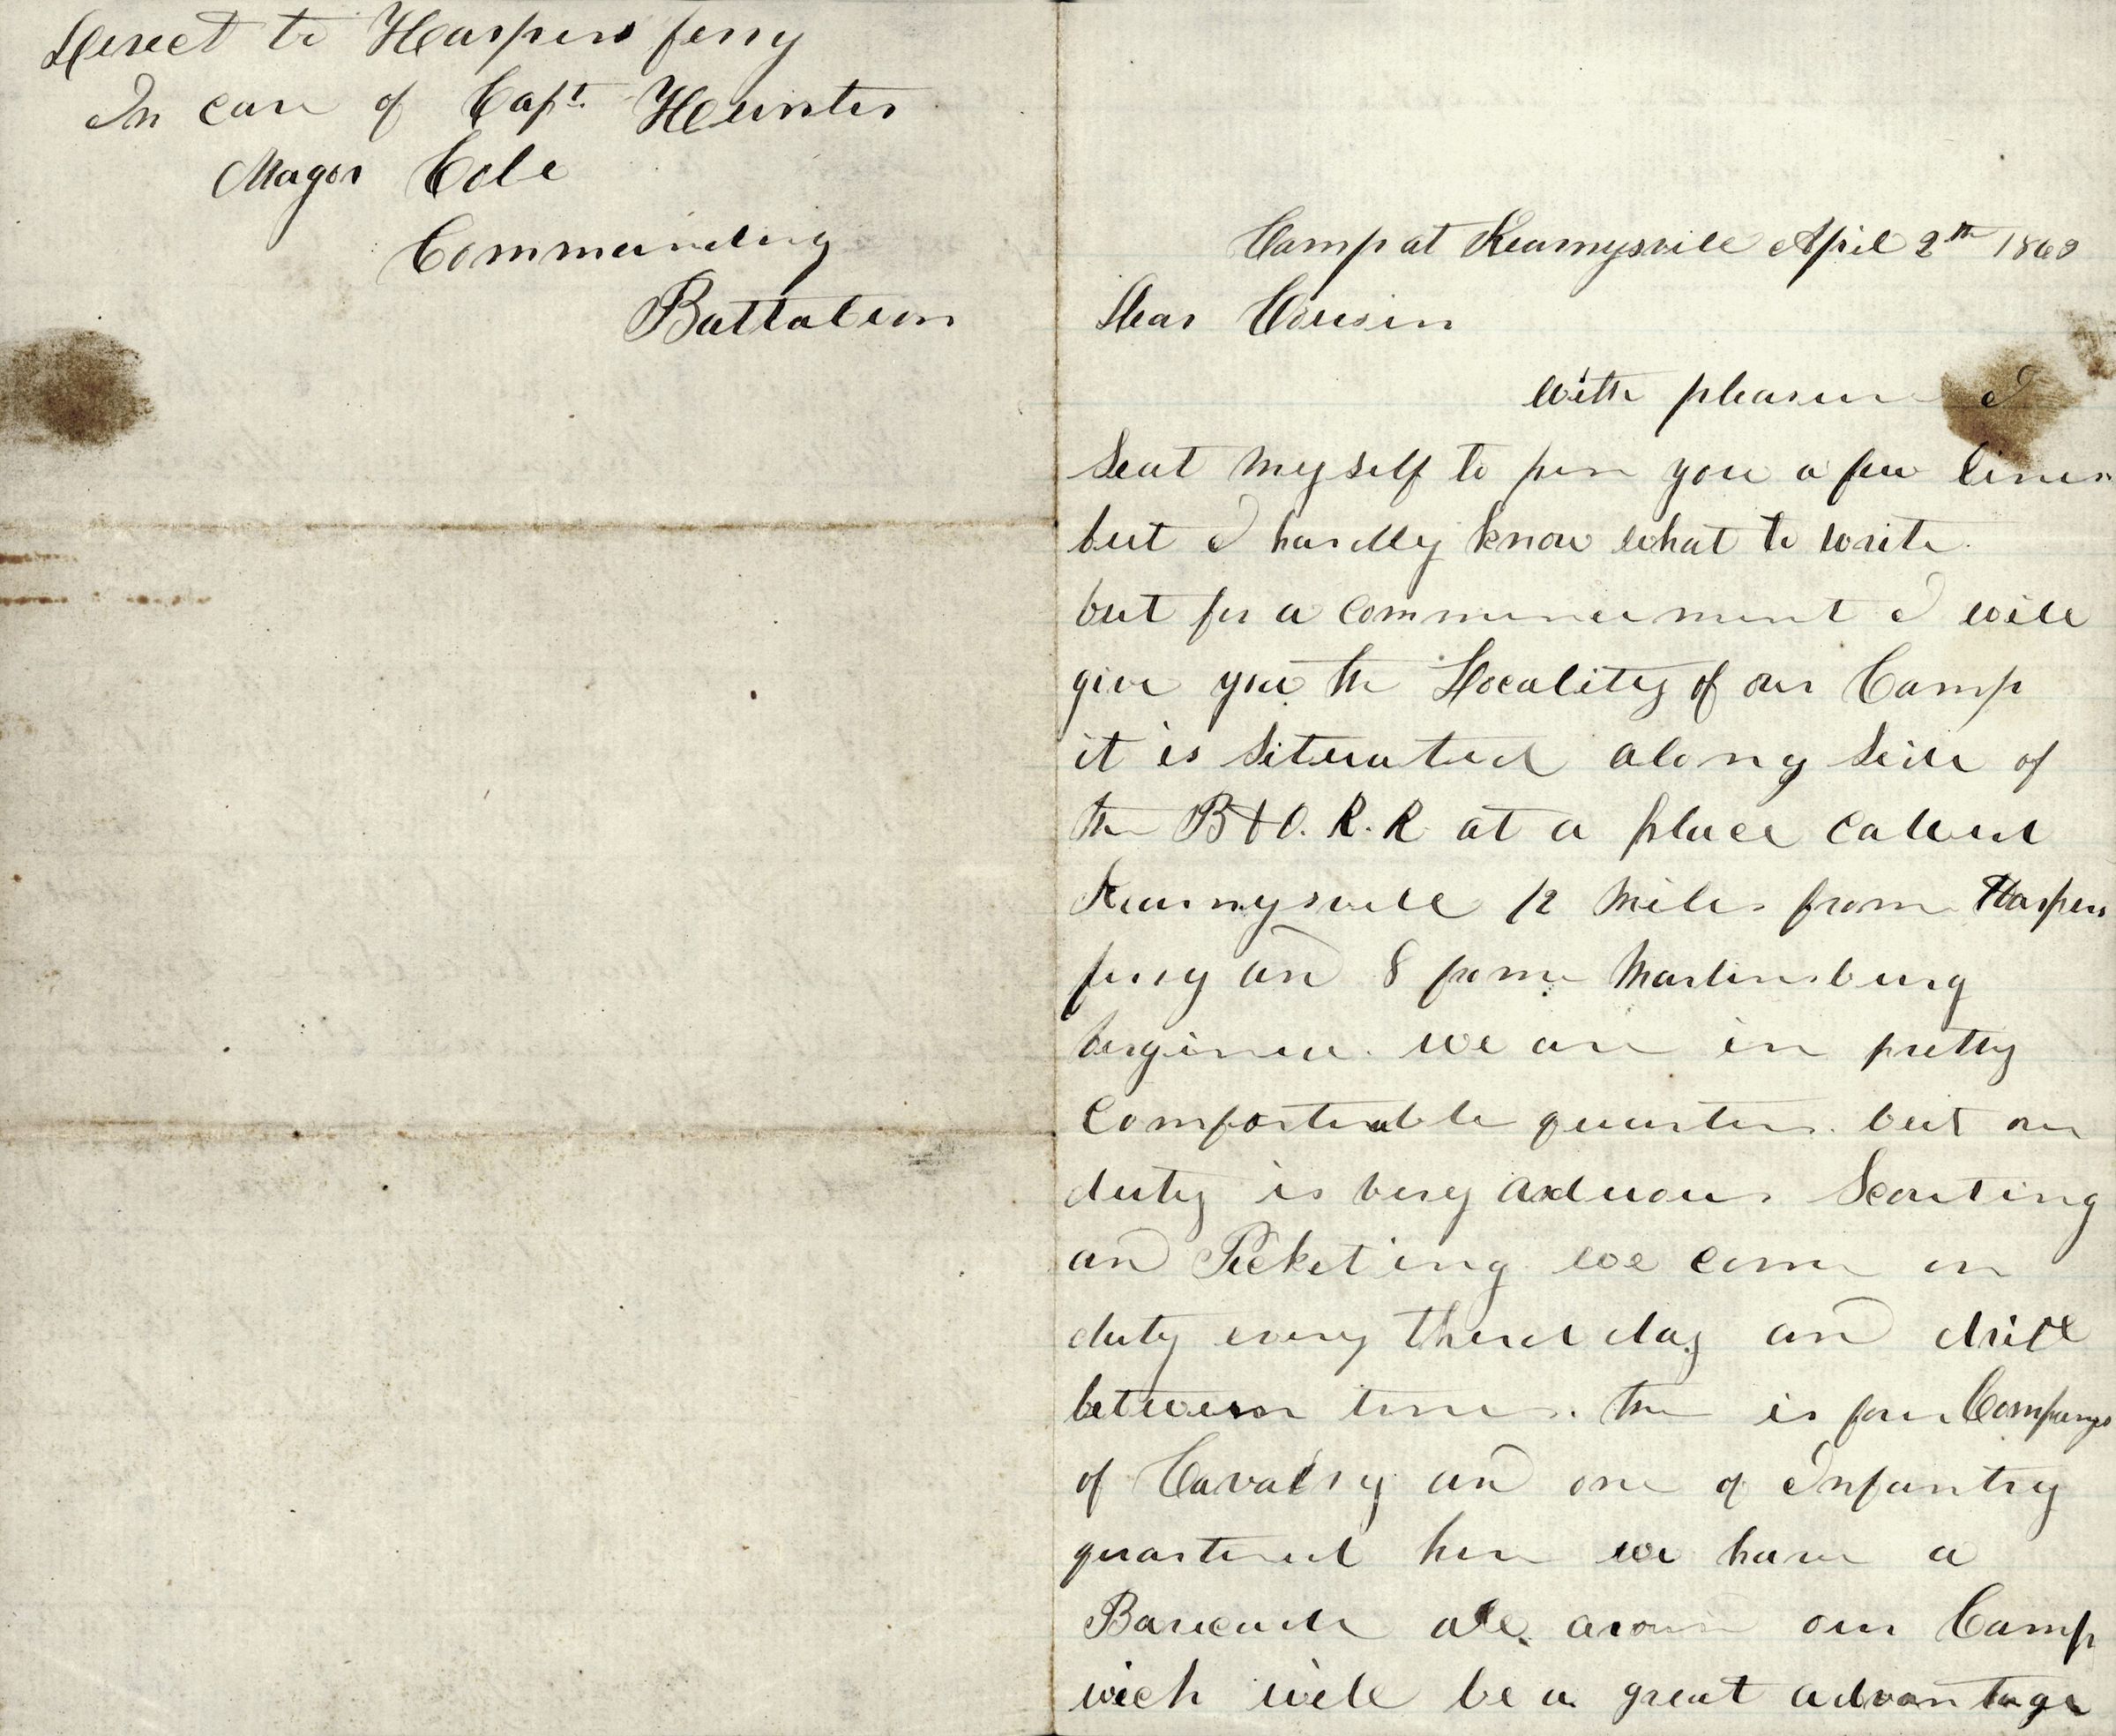 Direct to Harpers ferry
In care of Capt Hunter
Magor Cole
Commanding
Battalion
Camp at Kearnysvile April 2th 1863
Dear Cousin
with pleasure I
Seat myself to pen you a few lines
but I hardly know what to write
but for a commencement I will
give you the Locality of our Camp
it is Situated along Side of
the B & O. R. R at a place called
Kearnysville 12 miles from Harpers
ferry an 8 frome Martinsburg
Verginia. we are in pretty
Comfortable quarters. but our
duty is very arduous Scouting
an Picketing we come on
duty every third day an drill
between times. the is four Companys
of Cavalry an one of Infantry
quartered here we have a
Baricade all aroun our Camp
wich will be a great advantage